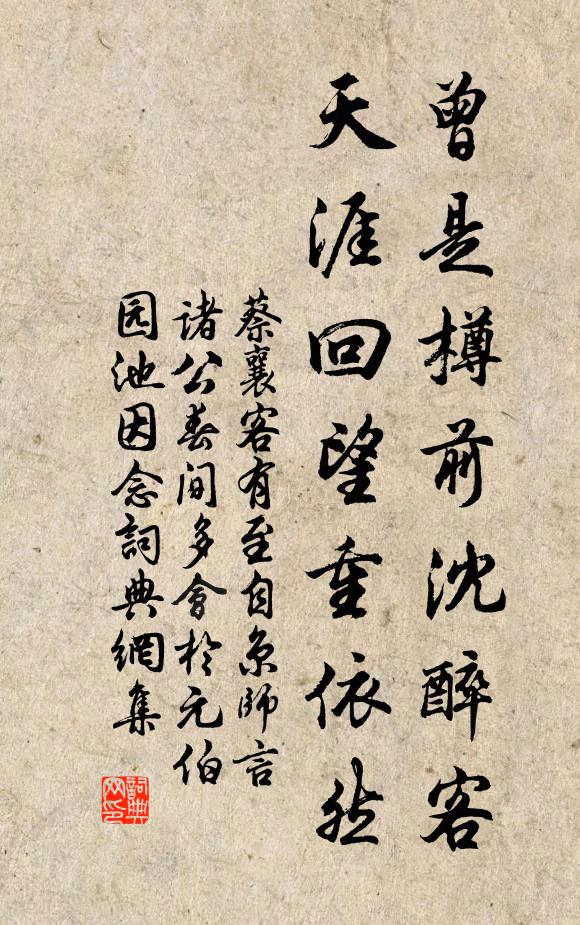 曾是樽前沈醉客
天涯回望重依然
蔡襄客有至自京師言
諸公春间多會於元伯
园池因念詞典網集
詞典網印